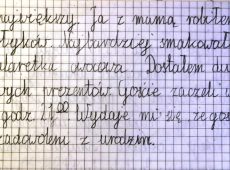 największy. Ja z mamą robiłem
tyków. Najbardziej smakował
alaretka owocowa. Dostałem du
wych prezentów. Goście zaczęli w
godz. 21⁰⁰ Wydaje mi się, że goś
zadowoleni z urodzin.